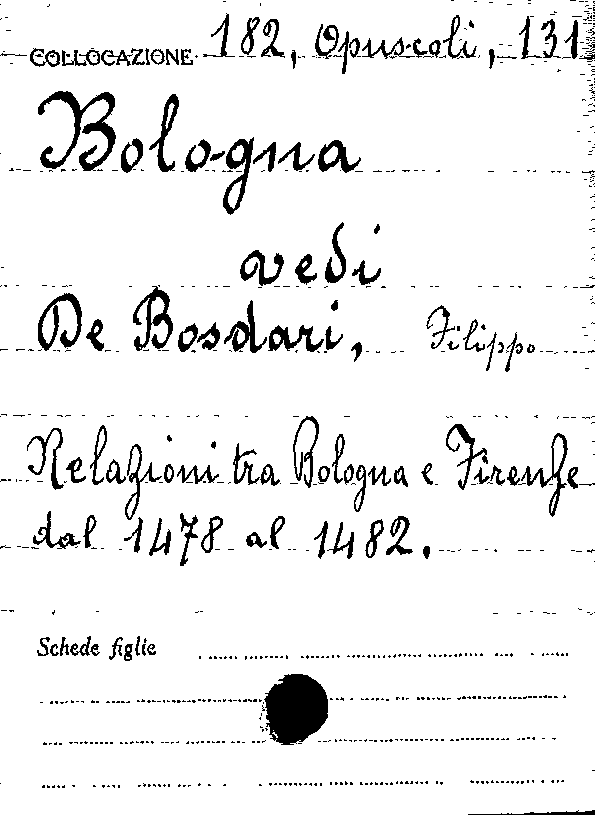 COLLOCAZIONE 182, Opuscoli, 131
Bologna
vedi
De Bosdari, Filippo
Relazioni tra Bologna e Firenze
dal 1478 al 1482.
Schede figlie